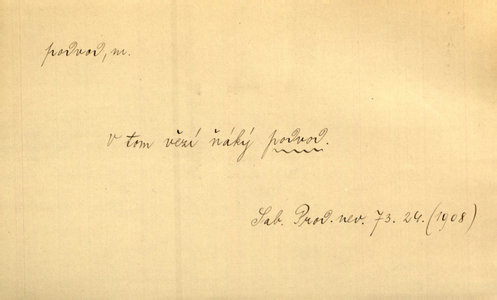 podvod, m.
V tom vězí ňáký podvod.
Sab. Prod. nev. 73. 24. (1908)